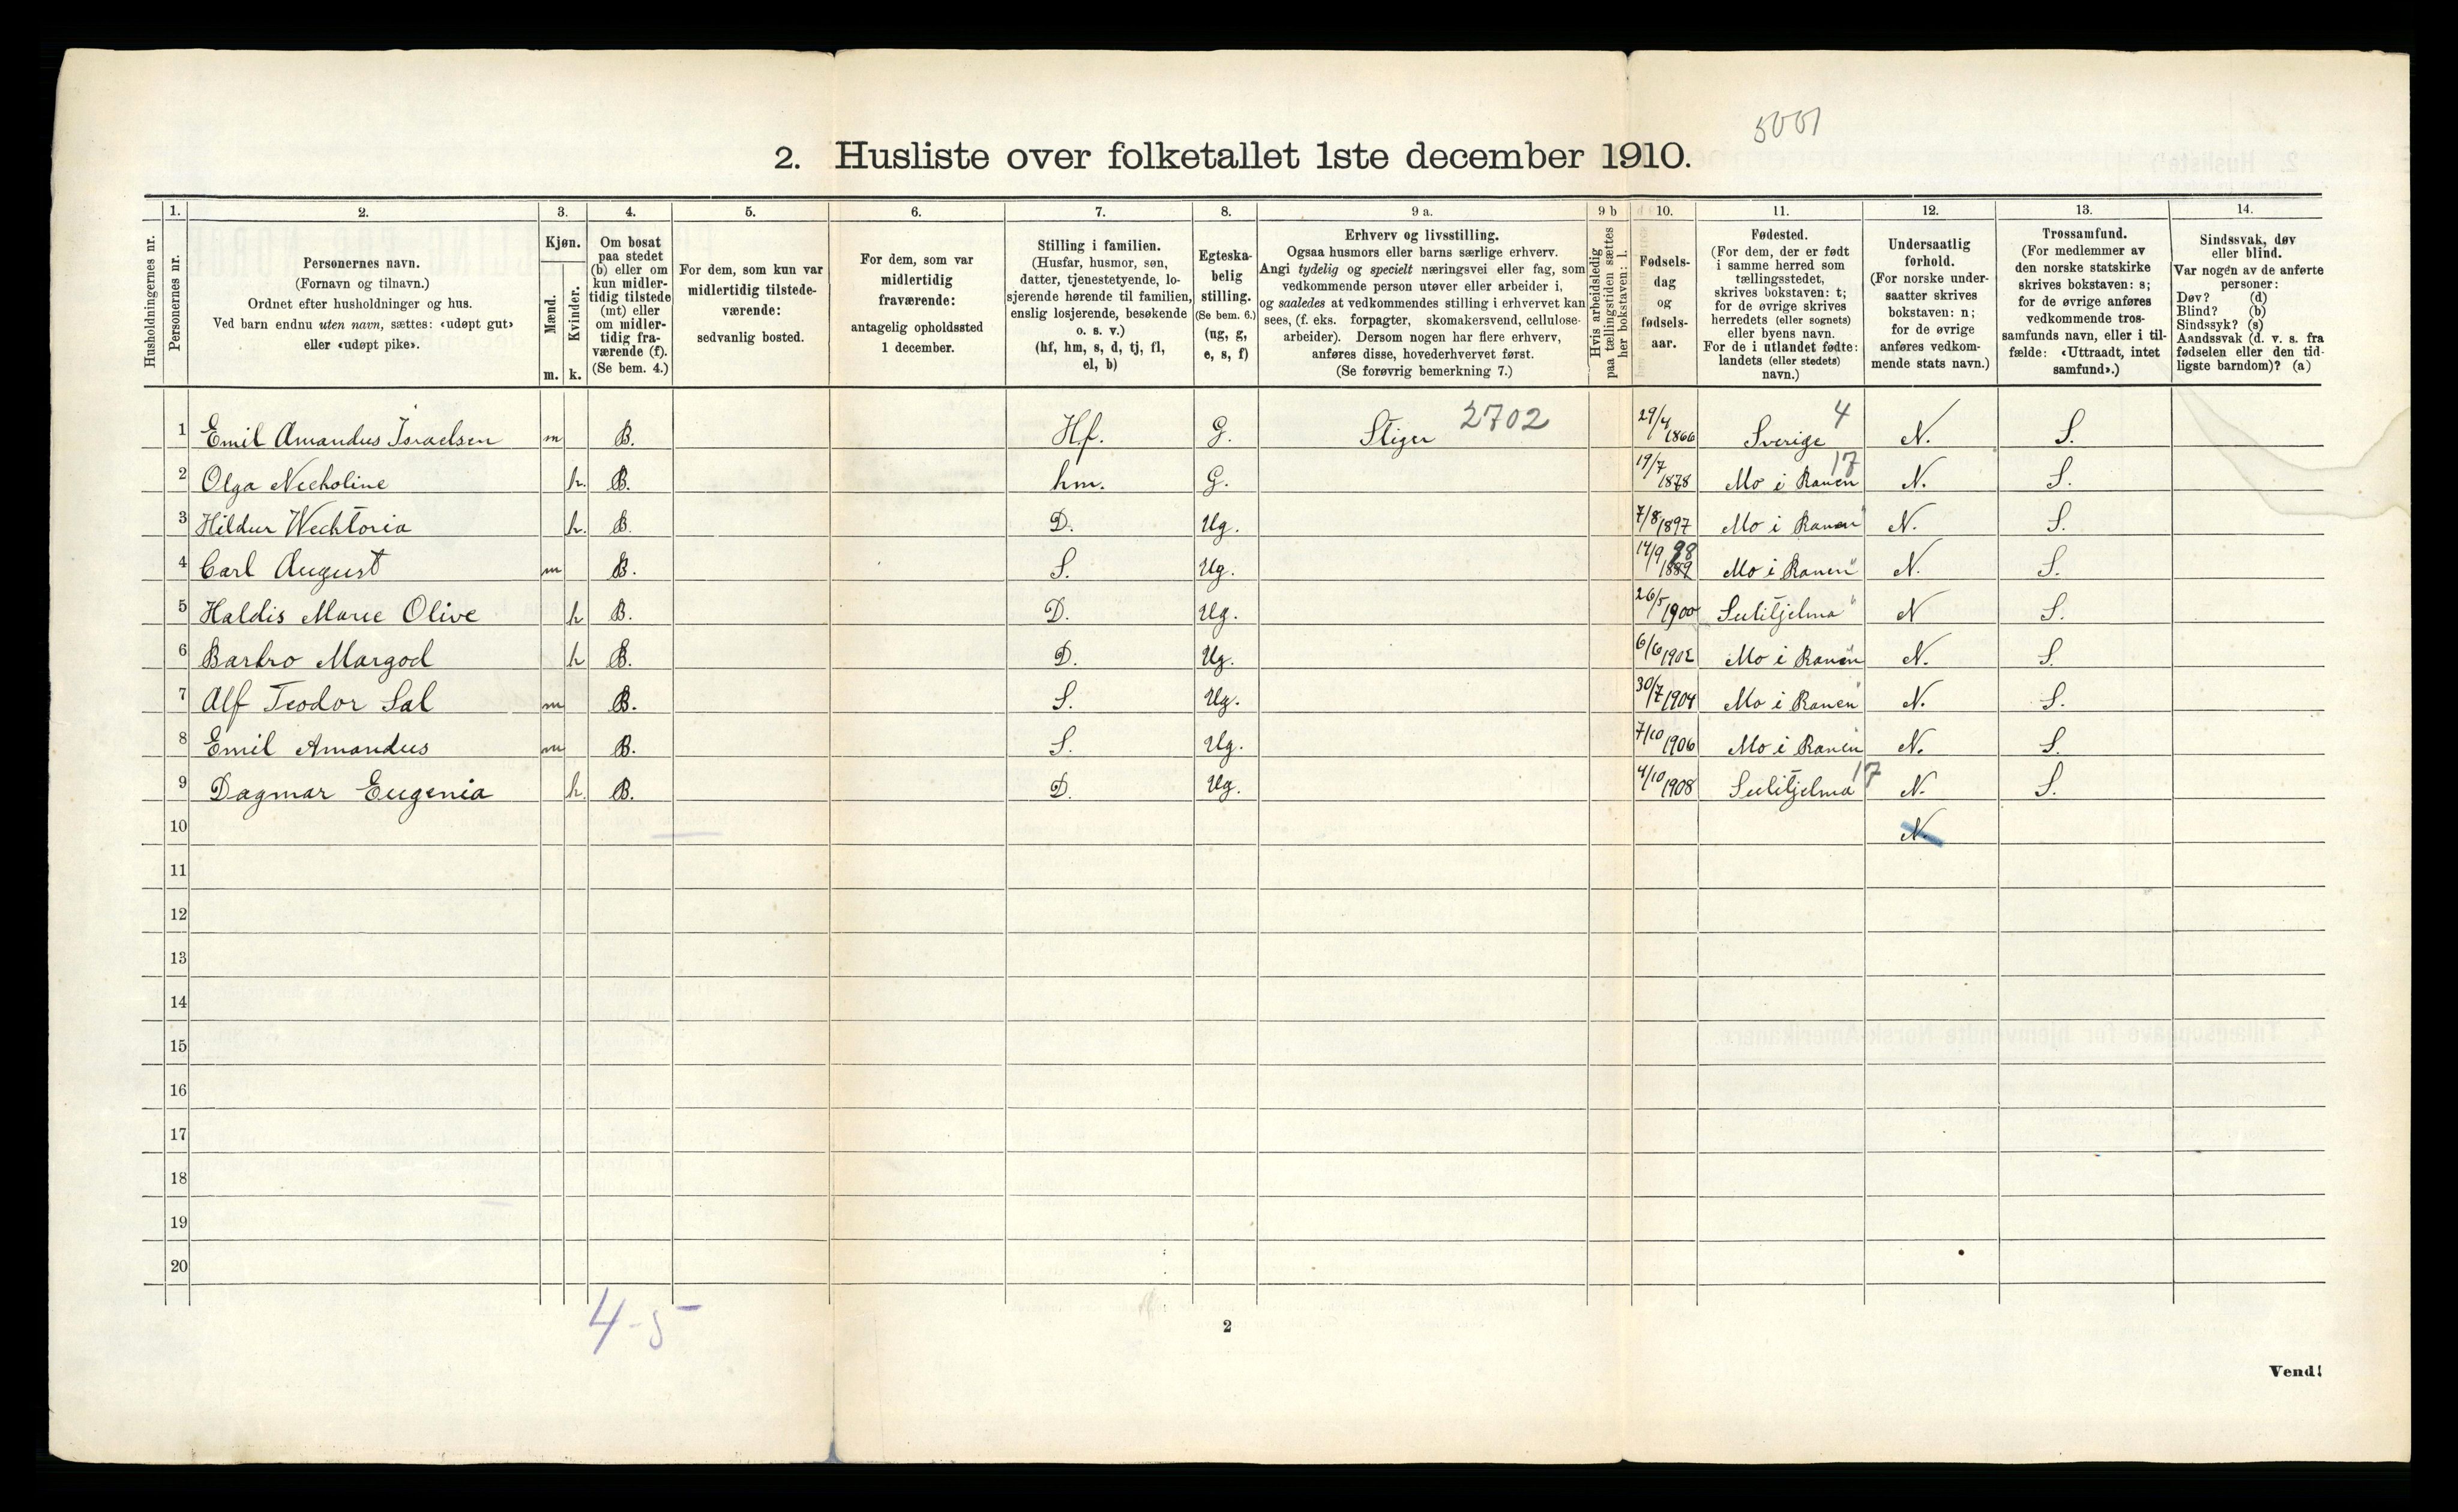 5001
2. Husliste over folketallet 1ste december 1910.
Husholdningernes nr.
1.
Personernes nr.
2.
Personernes navn.
(Fornavn og tilnavn.)
Ordnet efter husholdninger og hus.
Ved barn endnu uten navn, sættes: «udøpt gut»
eller «udøpt pike».
3.
Kjøn.
Mænd.
Kvinder.
m. k.
4.
Om bosat
paa stedet
(b) eller om
kun midler-
tidig tilstede
(mt) eller
om midler-
tidig fra-
værende (f).
(Se bem. 4.)
5.
For dem, som kun var
midlertidig tilstede-
værende:
sedvanlig bosted.
6.
For dem, som var
midlertidig
fraværende:
antagelig opholdssted
1 december.
7.
Stilling i familien.
(Husfar, husmor, søn,
datter, tjenestetyende, lo-
sjerende hørende til familien,
enslig losjerende, besøkende
o. s. v.)
(hf, hm, s, d, tj, fl,
el, b)
8.
Egteska-
belig
stilling.
(Se bem. 6.)
(ug, g,
e, s, f)
9 a.
Erhverv og livsstilling.
Ogsaa husmors eller barns særlige erhverv.
Angi tydelig og specielt næringsvei eller fag, som
vedkommende person utøver eller arbeider i,
og saaledes at vedkommendes stilling i erhvervet kan
sees, (f. eks. forpagter, skomakersvend, cellulose-
arbeider). Dersom nogen har flere erhverv,
anføres disse, hovederhvervet først.
(Se forøvrig bemerkning 7.)
9 b
Hvis arbeidsledig
paa tællingstiden sættes
her bokstaven: l.
10.
Fødsels-
dag
og
fødsels-
aar.
11.
Fødested.
(For dem, der er født
i samme herred som
tællingsstedet,
skrives bokstaven: t;
for de øvrige skrives
herredets (eller sognets)
eller byens navn.
For de i utlandet fødte:
landets (eller stedets)
navn.)
12.
Undersaatlig
forhold.
(For norske under-
saatter skrives
bokstaven: n;
for de øvrige
anføres vedkom-
mende stats navn.)
13.
Trossamfund.
(For medlemmer av
den norske statskirke
skrives bokstaven: s;
for de øvrige anføres
vedkommende tros-
samfunds navn, eller i til-
fælde: «Uttraadt, intet
samfund».)
14.
Sindssvak, døv
eller blind.
Var nogen av de anførte
personer:
Døv? (d)
Blind? (b)
Sindssyk? (s)
Aandssvak (d. v. s. fra
fødselen eller den tid-
ligste barndom)? (a)
1 Emil Amandus Israelsen m B. Hf. G. Stiger 2702 29/4 1866 Sverige 4 N. S.
2 Olga Necholine k. B. hm. G. 19/7 1878 Mo i Ranen 17 N. S.
3 Hildur Wechtoria k. B. D. Ug. 7/8 1897 Mo i Ranen " N. S.
4 Carl August m B. S. Ug. 14/9 1889 98 Mo i Ranen " N. S.
5 Haldis Marie Olive k B. D. Ug. 26/5 1900 Sulitjelma " N S.
6 Barbro Margod k B. D. Ug. 6/6 1902 Mo i Ranen " N. S.
7 Alf Teodor Sal m B. S. Ug. 30/7 1904 Mo i Ranen " N. S.
8 Emil Amandus m B. S. Ug. 7/10 1906 Mo i Ranen " N. S.
9 Dagmar Eugenia k. B. D. Ug. 4/10 1908 Sulitjelma 17 N. S.
10 N.
11
12
13
14
15
16
17
18
19
20
4-5
2
Vend!